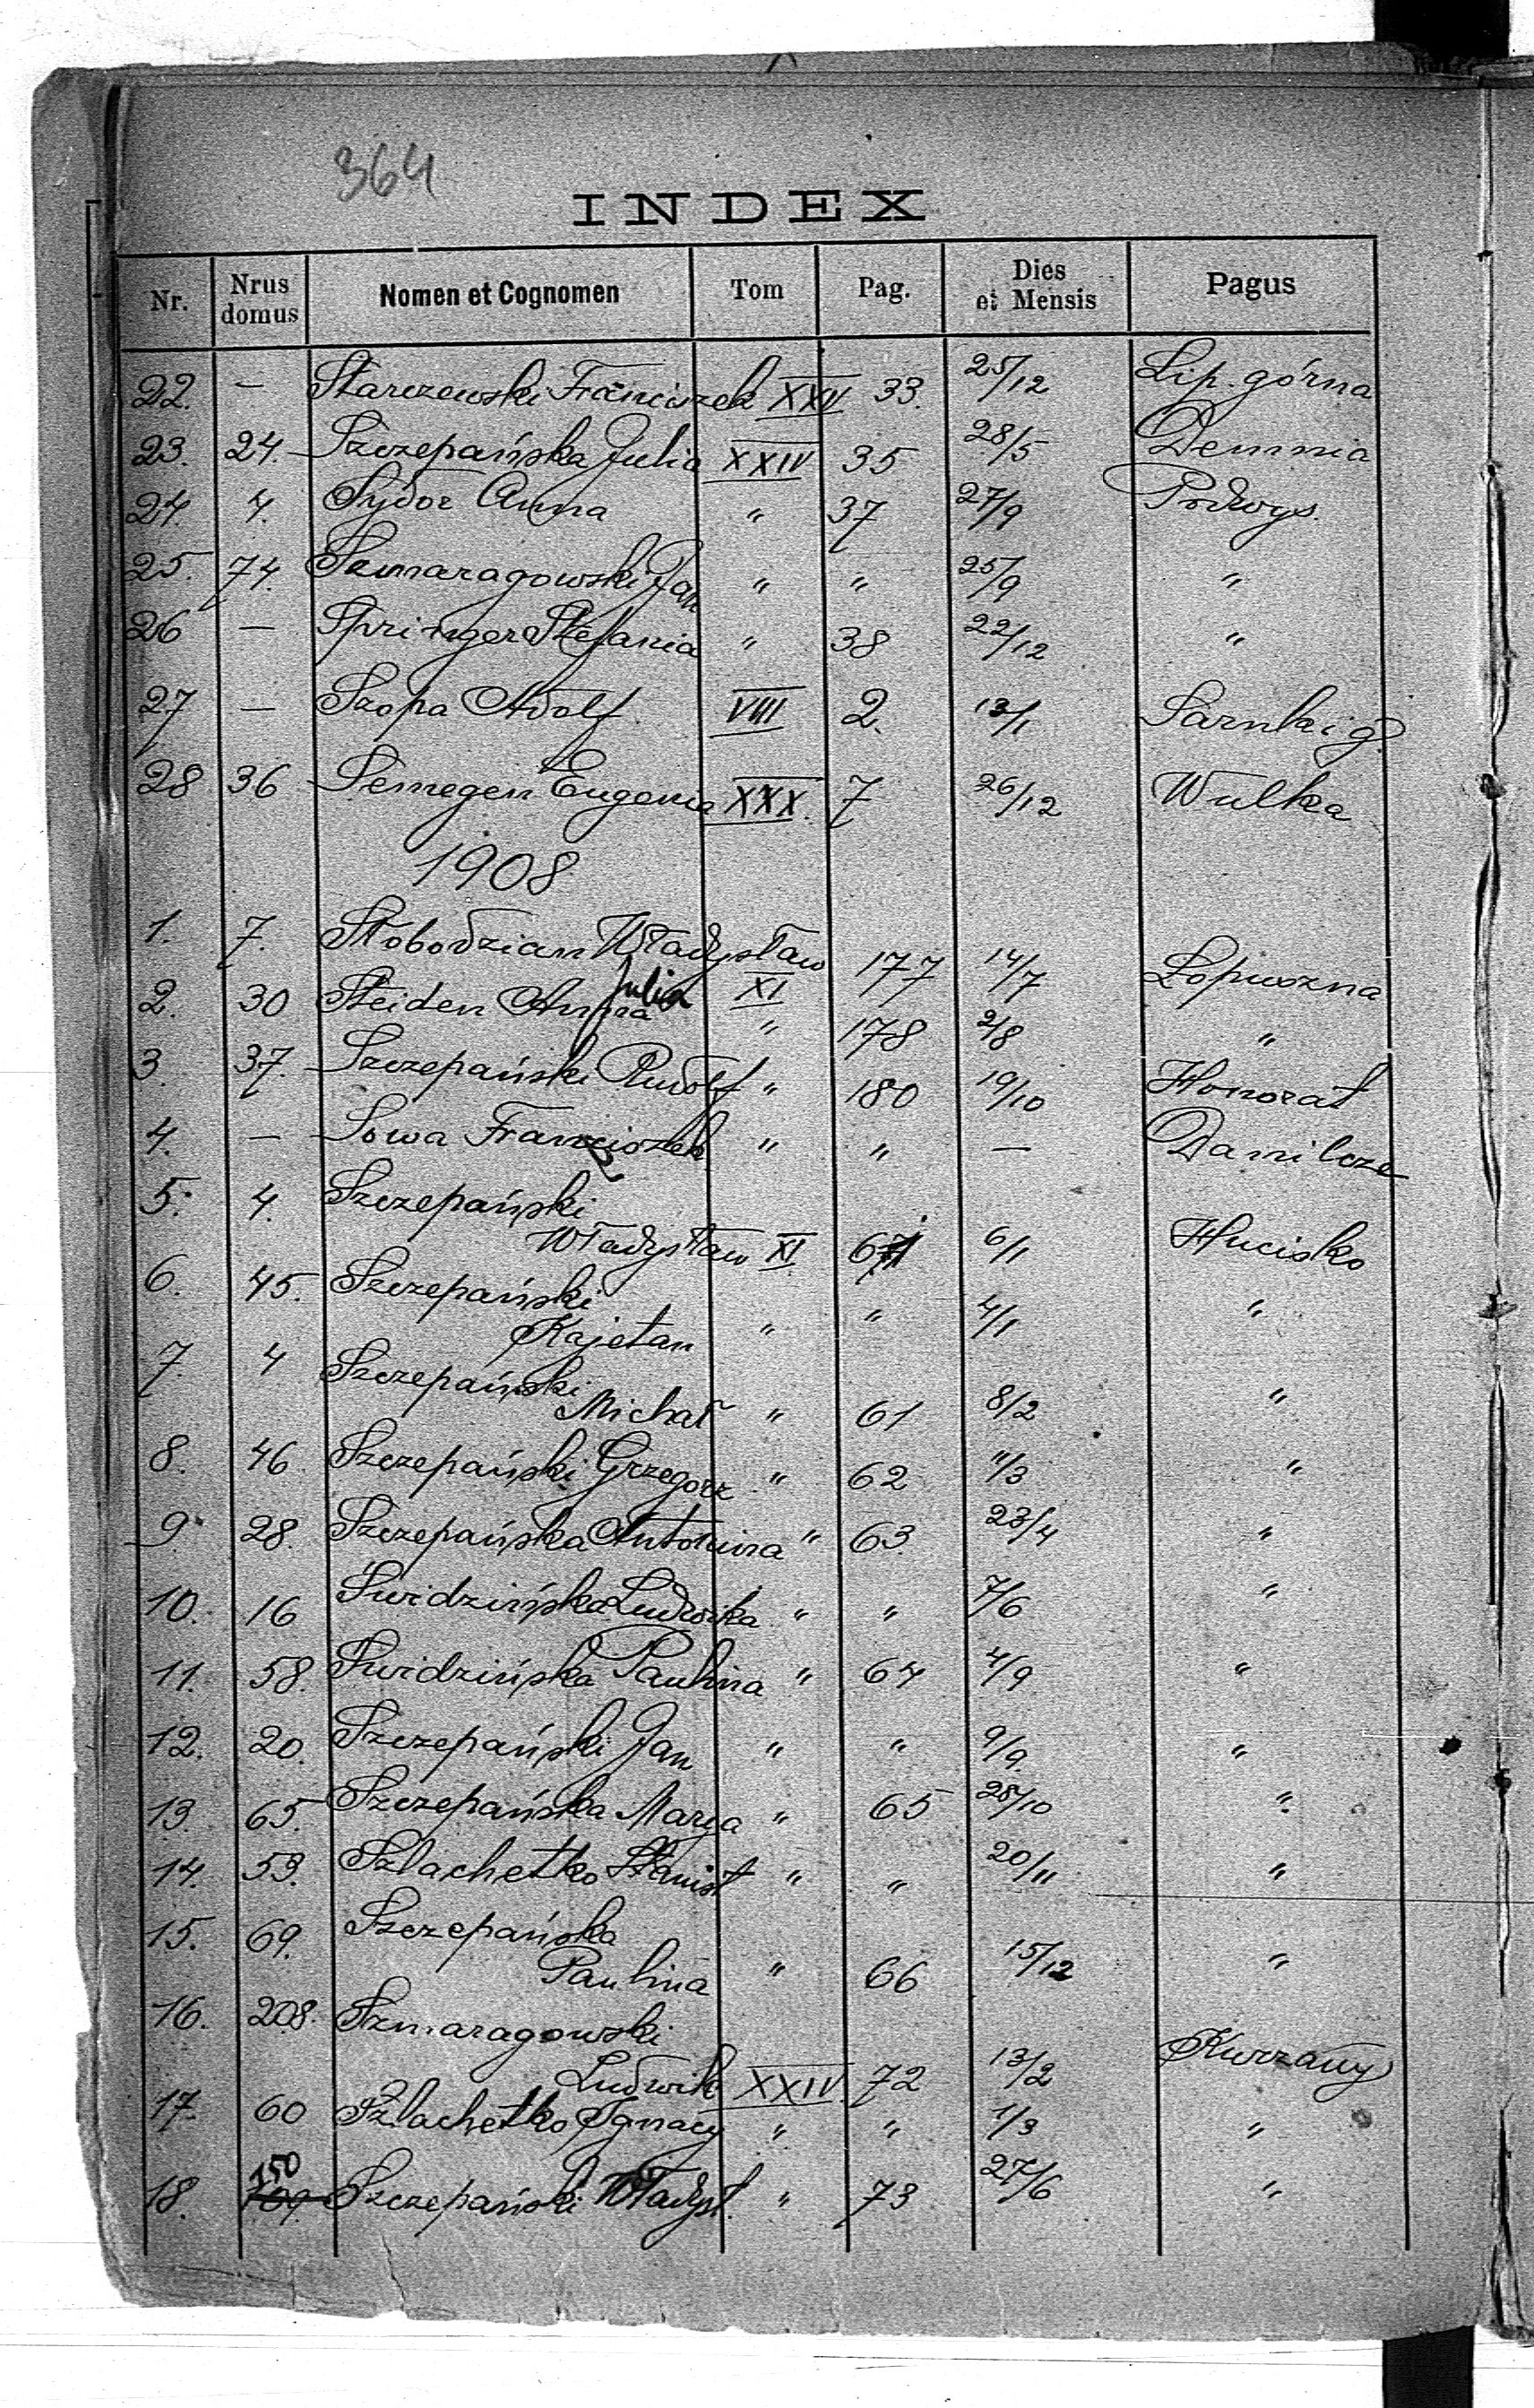 364
INDEX
Nr. Nrus domus Nomen et Cognomen Tom Pag. Dies et Mensis Pagus
22. — Starczewski Franciszek XXII 33. 25/12 Lip. górna
23. 24. Szczepańska Julia XXIV 35 28/5 Demnia
24. 4. Sydor Anna " 37 27/9 Podwys.
25. 74. Szmaragowski Jan " " 25/9 "
26 — Springer Stefania " 38 22/12 "
27 — Szopa Adolf VIII 2. 13/1 Sarnki g.
28 36 Semegen Eugenia XXX. 7 26/12 Wulka
1908
1. 7. Słobodzian Władysław XI 177 14/7 Łopuszna
2. 30 Steiden Anna Julia " 178 2/8 "
3. 37. Szczepański Rudolf " 180 19/10 Honorat
4. — Sowa Franciszek " " — Danilcze
5. 4. Szczepański
Władysław XI 61 6/1 Hucisko
6. 45. Szczepański
Kajetan " " 4/1 "
7. 4 Szczepański
Michał " 61 8/2 "
8. 46. Szczepański Grzegorz " 62 11/3 "
9. 28. Szczepańska Antonina " 63 23/4 "
10. 16 Swidzińska Ludwika " " 7/6 "
11. 58. Swidzińska Paulina " 64 4/9 "
12. 20. Szczepański Jan " " 9/9. "
13. 65. Szczepańska Marya " 65 28/10 "
14. 53. Szlachetko Stanisł " " 20/11 "
15. 69. Szczepańska
Paulina " 66 15/12 "
16. 208. Szmaragowski
Ludwik XXIV 72 13/2 Kurzany
17. 60 Szlachetko Ignacy " " 1/3 "
150
18. 109. Szczepański Władysł. " 73 27/6 "